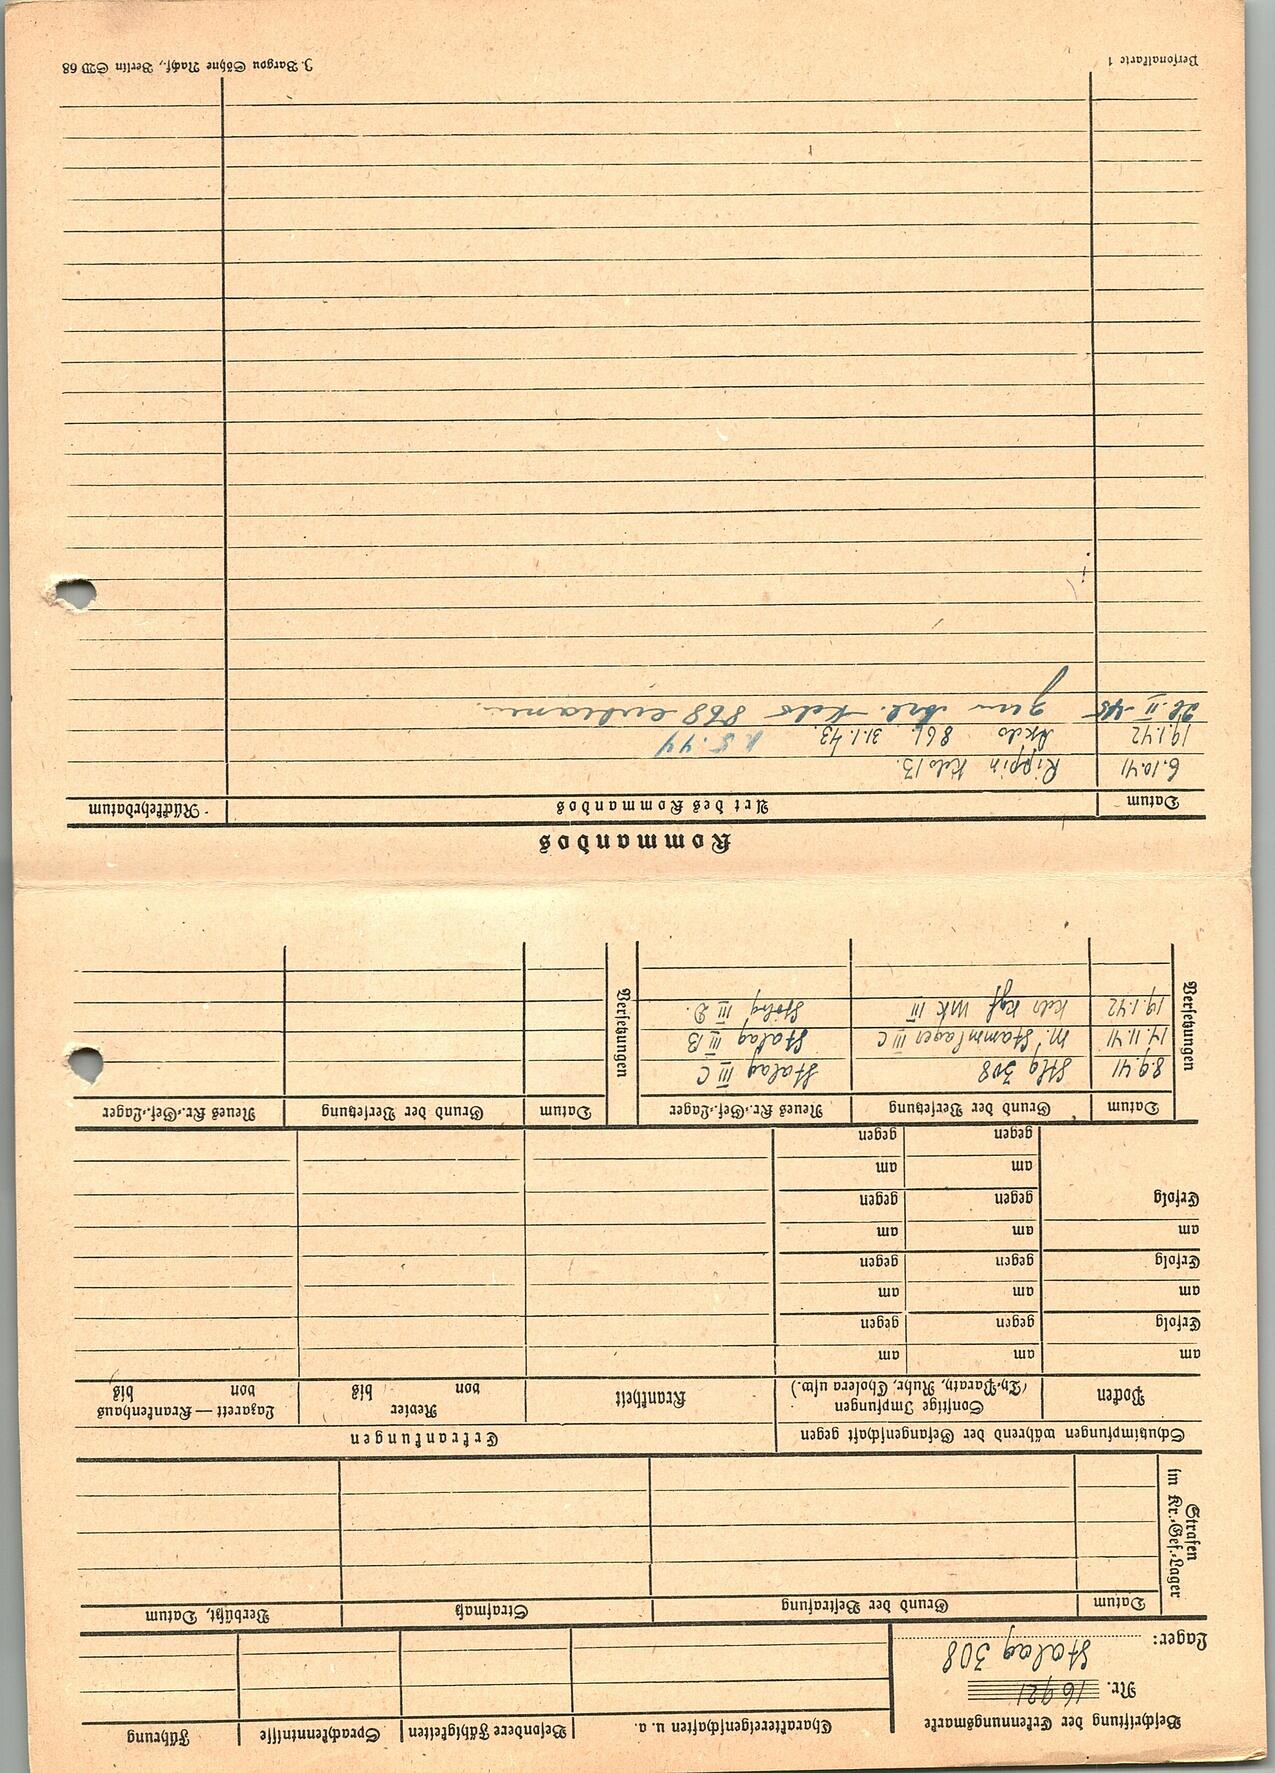 Beschriftung der Erkennungsmarke
Nr. 16921
Lager: Stalag 308
Charaktereigenschaften u. a. Besondere Fähigkeiten Sprachkenntnisse Führung
Strafen im Kr.-Gef.-Lager
Datum Grund der Bestrafung Strafmaß Verbüßt, Datum
Schutzimpfungen während der Gefangenschaft gegen Erkrankungen
Pocken Sonstige Impfungen Krankheit Revier Lazarett — Krankenhaus
(Ty.-Paraty, Ruhr, Cholera usw.) von bis von bis
am am am
Erfolg gegen gegen
am am am
Erfolg gegen gegen
am am am
Erfolg gegen gegen
am am
gegen gegen
Versetzungen
Datum Grund der Versetzung Neues Kr.-Gef.-Lager
8.9.41 Stlg 308 Stalag III C
14.11.41 M. Stammlager III C Stalag III B
19.1.42 Kdo Kgf WK III Stalag III D.
Versetzungen
Datum Grund der Versetzung Neues Kr.-Gef.-Lager
Kommandos
Datum Art des Kommandos Rückkehrdatum
6.10.41 Rippin Kdo 13.
19.1.42 Akdo 861. 31.1.43. 1.5.44
28.II.45 zum Arb. Kdo 868
Personalkarte 1 J. Bargou Söhne Nachf., Berlin SW 68